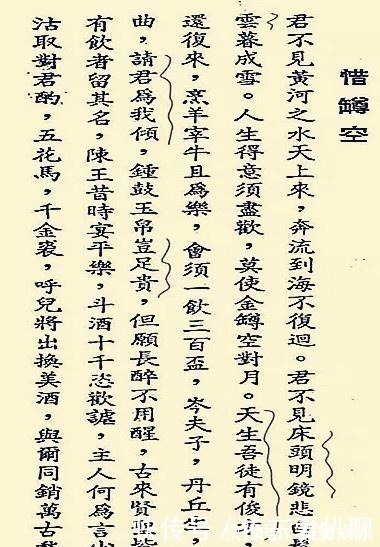 惜罇空
君不見黃河之水天上來,奔流到海不復迴。君不見床頭明鏡悲
雲暮成雪。人生得意須盡歡,莫使金罇空對月。天生吾徒有俊
還復來,烹羊宰牛且爲樂,會須一飲三百盃,岑夫子,丹丘生
曲,請君爲我傾,鍾鼓玉帛豈足貴,但願長醉不用醒,古來賢
有飲者留其名,陳王昔時宴平樂,斗酒十千恣歡謔,主人何爲言
沽取對君酌,五花馬,千金裘,呼兒將出換美酒,與爾同銷萬古